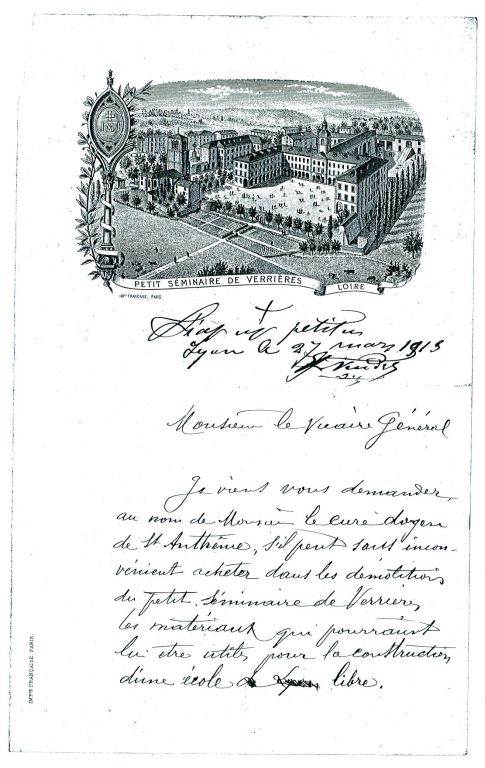 IHS
PETIT SÉMINAIRE DE VERRIÈRES
LOIRE
IMP^ie FRANÇAISE, PARIS.
Fiat ut petitur
Lyon le 27 mars 1913
Monsieur le Vicaire Général
Je viens vous demander,
au nom de Monsieur le curé doyen
de St Anthême, s'il peut sans incon-
vénient acheter dans les démolitions
du petit séminaire de Verrières
les matériaux qui pourraient
lui etre utiles pour la construction
d'une école libre.
IMP^ie FRANÇAISE PARIS